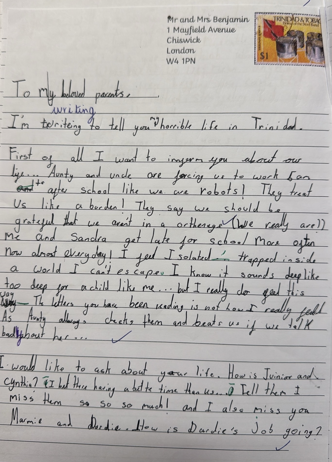 Mr and Mrs Benjamin
1 Mayfield Avenue
Chiswick
London
W4 1PN
TRINIDAD & TOBAGO
$1
To My beloved parents.
writing
I'm to tell you horrible life in Trinidad.
First of all I want to inform you about our
life... Aunty and uncle are forcing us to work 5am
and to after school like we are robots! They treat
Us like a burden! They say we should be
grateful that we arent in a (We really are!)
Me and Sandra get late for school More often
now almost everyday! I feel Isolated trapped inside
a world I can't escape. I know it sounds deep like
too deep for a child like me... but I really do feel this
way The letters you have been reading is not how I really feel
As Aunty always checks them and beats us if we talk
badly about her...
I would like to ask about your life. How is Junior and
Cynthia? I bet there having a better time than us... Tell them I
miss them so so so much! and I also miss you
Marmie and Dardie. How is Dardie's job going?